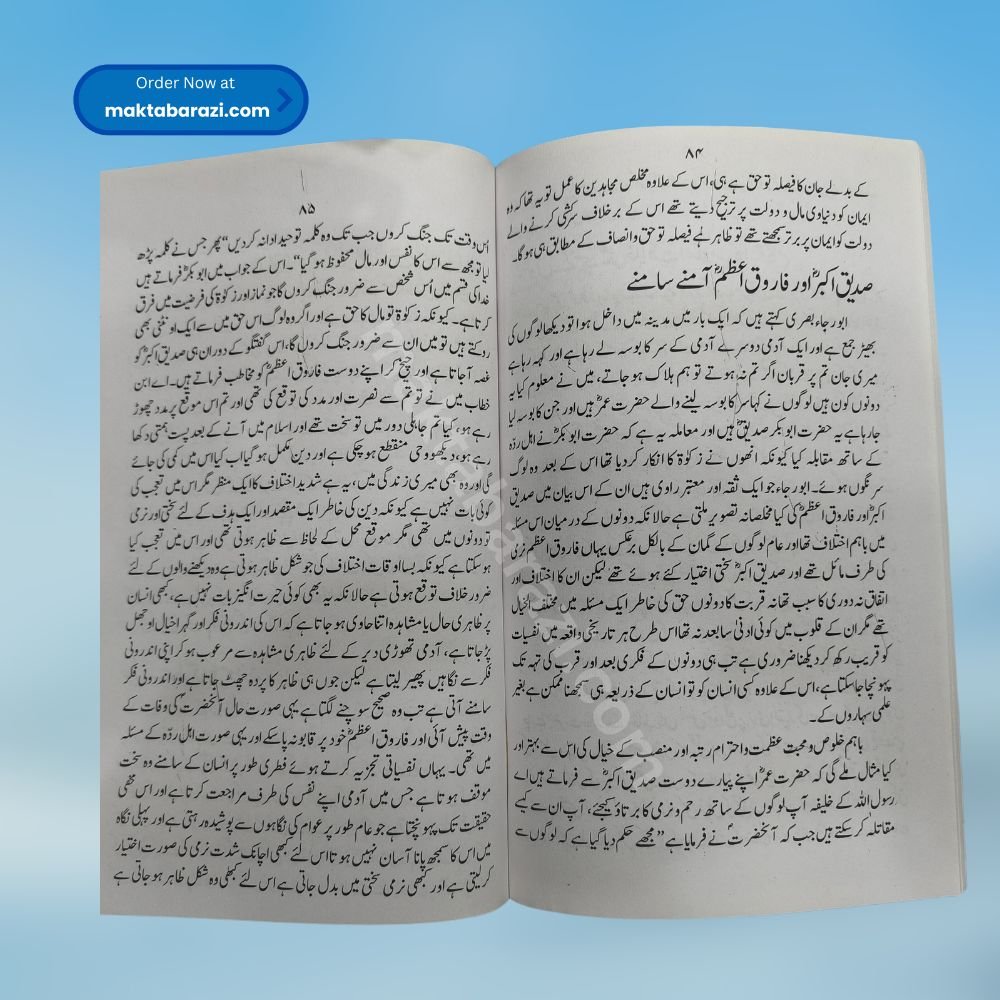 Order Now at
maktabarazi.com
۸۴
کے بدلے جان کا فیصلہ تو حق ہے ہی، اس کے علاوہ مخلص مجاہدین کا عمل تو یہ تھا کہ وہ
ایمان کو دنیاوی مال و دولت پر ترجیح دیتے تھے اس کے برخلاف سرکشی کرنے والے
دولت کو ایمان پر برتر سمجھتے تھے تو ظاہر ہے فیصلہ تو حق و انصاف کے مطابق ہی ہوگا۔
صدیق اکبرؓ اور فاروق اعظمؓ آمنے سامنے
ابورجاء بصری کہتے ہیں کہ ایک بار میں مدینہ میں داخل ہوا تو دیکھا لوگوں کی
بھیڑ جمع ہے اور ایک آدمی دوسرے آدمی کے سر کا بوسہ لے رہا ہے اور کہہ رہا ہے
میری جان تم پر قربان اگر تم نہ ہوتے تو ہم ہلاک ہو جاتے، میں نے معلوم کیا یہ
دونوں کون ہیں لوگوں نے کہا سر کا بوسہ لینے والے حضرت عمرؓ ہیں اور جن کا بوسہ لیا
جا رہا ہے یہ حضرت ابوبکر صدیقؓ ہیں اور معاملہ یہ ہے کہ حضرت ابوبکرؓ نے اہل ردّہ
کے ساتھ مقابلہ کیا کیونکہ انھوں نے زکوٰۃ کا انکار کر دیا تھا اس کے بعد وہ لوگ
سرنگوں ہوئے۔ ابورجاء جو ایک ثقہ اور معتبر راوی ہیں ان کے اس بیان میں صدیق
اکبرؓ اور فاروق اعظمؓ کی کیا مخلصانہ تصویر ملتی ہے حالانکہ دونوں کے درمیان اس مسئلہ
میں باہم اختلاف تھا اور عام لوگوں کے گمان کے بالکل برعکس یہاں فاروق اعظم نرمی
کی طرف مائل تھے اور صدیق اکبرؓ سختی اختیار کئے ہوئے تھے لیکن ان کا اختلاف اور
اتفاق نہ دوری کا سبب تھا نہ قربت کا دونوں حق کی خاطر ایک مسئلہ میں مختلف الخیال
تھے مگر ان کے قلوب میں کوئی ادنیٰ سا بعد نہ تھا اس طرح ہر تاریخی واقعہ میں نفسیات
کو قریب رکھ کر دیکھنا ضروری ہے تب ہی دونوں کے فکری بعد اور قرب کی تہہ تک
پہونچا جا سکتا ہے، اس کے علاوہ کسی انسان کو تو انسان کے ذریعہ ہی سمجھنا ممکن ہے بغیر
علمی سہاروں کے۔
باہم خلوص و محبت عظمت و احترام رتبہ اور منصب کے خیال کی اس سے بہتر اور
کیا مثال ملے گی کہ حضرت عمرؓ اپنے پیارے دوست صدیق اکبرؓ سے فرماتے ہیں اے
رسول اللہ کے خلیفہ آپ لوگوں کے ساتھ رحم و نرمی کا برتاؤ کیجئے، آپ ان سے کیسے
مقاتلہ کر سکتے ہیں جب کہ آنحضرتؐ نے فرمایا ہے ”مجھے حکم دیا گیا ہے کہ لوگوں سے
۸۵
اس وقت تک جنگ کروں جب تک وہ کلمہ توحید ادا نہ کر دیں“ پھر جس نے کلمہ پڑھ
لیا تو مجھ سے اس کا نفس اور مال محفوظ ہو گیا“۔ اس کے جواب میں ابوبکرؓ فرماتے ہیں
خدا کی قسم میں اُس شخص سے ضرور جنگ کروں گا جو نماز اور زکوٰۃ کی فرضیت میں فرق
کرتا ہے۔ کیونکہ زکوٰۃ تو مال کا حق ہے اور اگر وہ لوگ اس حق میں سے ایک اونٹنی بھی
روکتے ہیں تو میں ان سے ضرور جنگ کروں گا، اس گفتگو کے دوران ہی صدیق اکبرؓ کو
غصہ آ جاتا ہے اور چیخ کر اپنے دوست فاروق اعظمؓ کو مخاطب فرماتے ہیں۔ اے ابن
خطاب میں نے تو تم سے نصرت اور مدد کی توقع کی تھی اور تم اس موقع پر مدد چھوڑ
رہے ہو، کیا تم جاہلی دور میں تو سخت تھے اور اسلام میں آنے کے بعد پست ہمتی دکھا
رہے ہو، دیکھو وحی منقطع ہو چکی ہے اور دین مکمل ہو گیا اب کیا اس میں کمی کی جائے
گی اور وہ بھی میری زندگی میں، یہ ہے شدید اختلاف کا ایک منظر مگر اس میں تعجب کی
کوئی بات نہیں ہے کیونکہ دین کی خاطر ایک مقصد اور ایک ہدف کے لئے سختی اور نرمی
تو دونوں میں تھی مگر موقع محل کے لحاظ سے ظاہر ہوتی تھی اور اس میں تعجب کیا
ہو سکتا ہے کیونکہ بسا اوقات اختلاف کی جو شکل ظاہر ہوتی ہے وہ دیکھنے والوں کے لئے
ضرور خلاف توقع ہوتی ہے حالانکہ یہ بھی کوئی حیرت انگیز بات نہیں ہے، بھی انسان
پر ظاہری حال یا مشاہدہ اتنا حاوی ہو جاتا ہے کہ اس کی اندرونی فکر اور گہرا خیال اوجھل
پڑ جاتا ہے، آدمی تھوڑی دیر کے لئے ظاہری مشاہدہ سے مرعوب ہو کر اپنی اندرونی
فکر سے نگاہیں پھیر لیتا ہے لیکن جوں ہی ظاہر کا پردہ چھٹ جاتا ہے اور اندرونی فکر
سامنے آتی ہے تب وہ صحیح سوچنے لگتا ہے یہی صورت حال آنحضرتؐ کی وفات کے
وقت پیش آئی اور فاروق اعظمؓ خود پر قابو نہ پا سکے اور یہی صورت اہل ردّہ کے مسئلہ
میں تھی۔ یہاں نفسیاتی تجزیہ کرتے ہوئے فطری طور پر انسان کے سامنے وہ سخت
موقف ہوتا ہے جس میں آدمی اپنے نفس کی طرف مراجعت کرتا ہے اور اس مخفی
حقیقت تک پہونچتا ہے جو عام طور پر عوام کی نگاہوں سے پوشیدہ رہتی ہے اور پہلی نگاہ
میں اس کا سمجھ پانا آسان نہیں ہوتا اس لئے کبھی اچانک شدت نرمی کی صورت اختیار
کر لیتی ہے اور کبھی نرمی سختی میں بدل جاتی ہے اس لئے کبھی وہ شکل ظاہر ہو جاتی ہے
maktabarazi.com